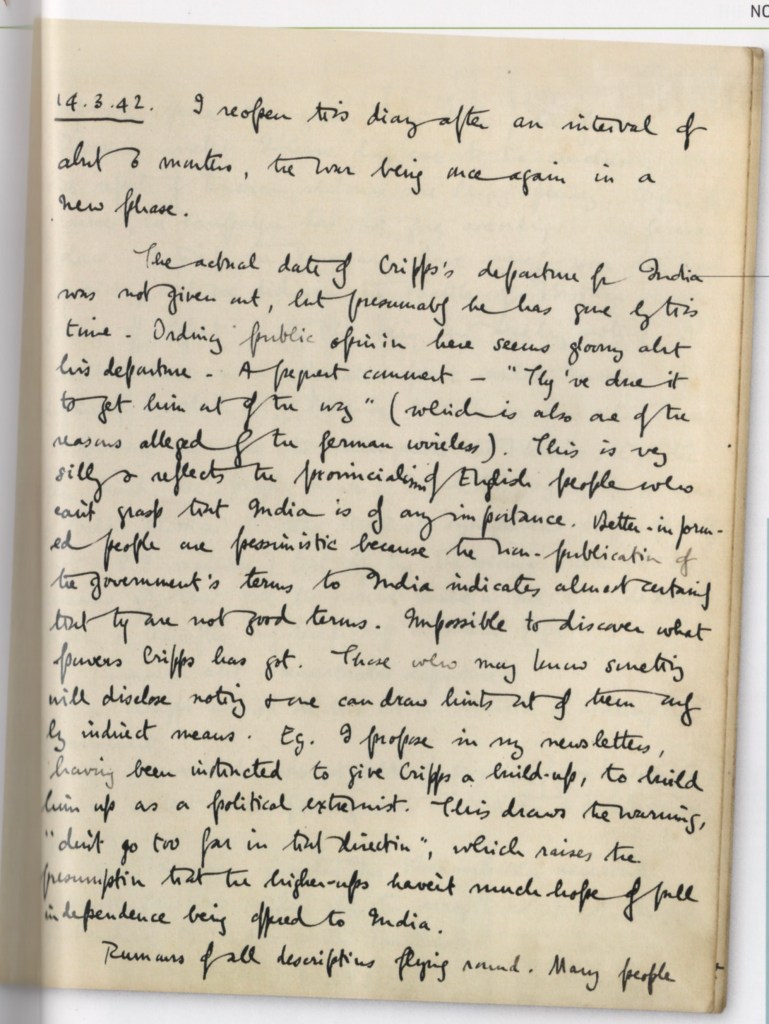 NO
14.3.42. I reopen this diary after an interval of
about 6 months, the war being once again in a
new phase.
The actual date of Cripps's departure for India
was not given out, but presumably he has gone by this
time. Ordinary public opinion here seems gloomy about
his departure. A frequent comment – "They've done it
to get him out of the way" (which is also one of the
reasons alleged by the German wireless). This is very
silly & reflects the provincialism of English people who
can't grasp that India is of any importance. Better-inform-
ed people are pessimistic because the non-publication of
the Government's terms to India indicates almost certainly
that they are not good terms. Impossible to discover what
powers Cripps has got. Those who may know something
will disclose nothing & one can draw hints out of them only
by indirect means. Eg. I propose in my newsletters,
having been instructed to give Cripps a build-up, to build
him up as a political extremist. This draws the warning,
"don't go too far in that direction", which raises the
presumption that the higher-ups haven't much hope of full
independence being offered to India.
Rumours of all descriptions flying round. Many people